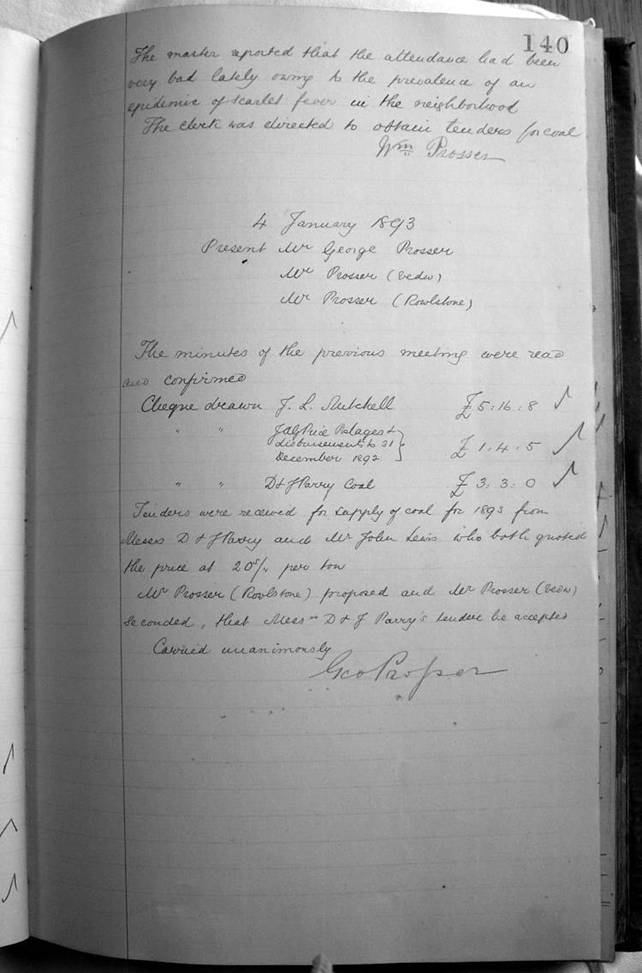 140
The master reported that the attendance had been
very bad lately owing to the prevalence of an
epidemic of scarlet fever in the neighborhood
The clerk was directed to obtain tenders for coal
Wm Prosser
4 January 1893
Present Mr George Prosser
Mr Prosser (Bedw)
Mr Prosser (Rowlstone)
The minutes of the previous meeting were read
and confirmed
Cheque drawn J. L. Mitchell £5:16:8
" " Price Postages &
disbursements to 31 £1.4.5
December 1892
" " D & J Parry Coal £3:3:0
Tenders were received for supply of coal for 1893 from
Messrs D & J Parry and Mr John Lewis who both quoted
the price at 20s/. per ton
Mr Prosser (Rowlstone) proposed and Mr Prosser (Bedw)
seconded, that Messrs D & J Parry's tender be accepted
Carried unanimously
Geo Prosser